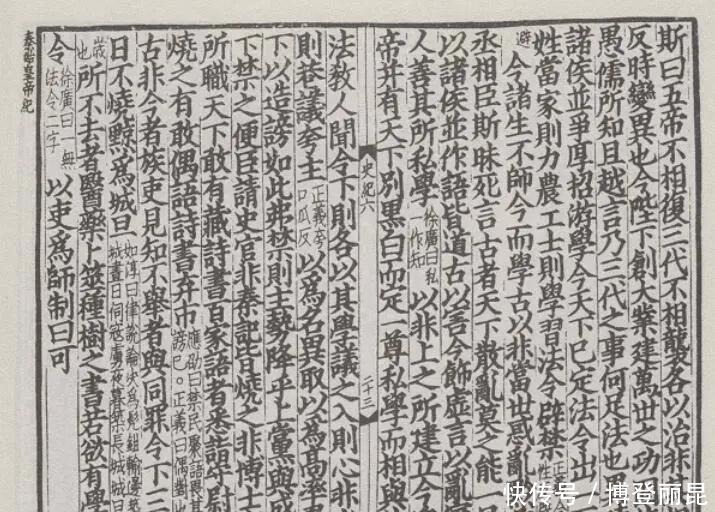 斯曰五帝不相復三代不相襲各以治非
反時變異也今陛下創大業建萬世之功
愚儒所知且越言乃三代之事何足法也
諸侯並爭厚招游學今天下已定法令出
姓當家則力農工士則學習法令辟禁正
避今諸生不師今而學古以非當世惑亂
丞相臣斯昧死言古者天下散亂莫之能一
以諸侯並作語皆道古以害今飾虛言以亂
人善其所私學徐廣曰私一作知以非上之所建立今
帝并有天下別黑白而定一尊私學而相與
史紀六 二十三
法教人聞令下則各以其學議之入則心非
則巷議夸主正義夸口瓜反以為名異取以為高率
下以造謗如此弗禁則主勢降乎上黨與
下禁之便臣請史官非秦記皆燒之非博士
所職天下敢有藏詩書百家語者悉詣守尉
燒之有敢偶語詩書弃市應劭曰禁民聚語畏其謗已。正義曰偶對也
古非今者族吏見知不舉者與同罪令下三
日不燒黥為城旦如淳曰律說論決為髡鉗輸邊築城晝日伺寇虜夜暮築長城城旦
歲也所不去者醫藥卜筮種樹之書若欲有學
令徐廣曰一無法令二字以吏為師制曰可
秦始皇帝紀
快传号 / 博登丽昆